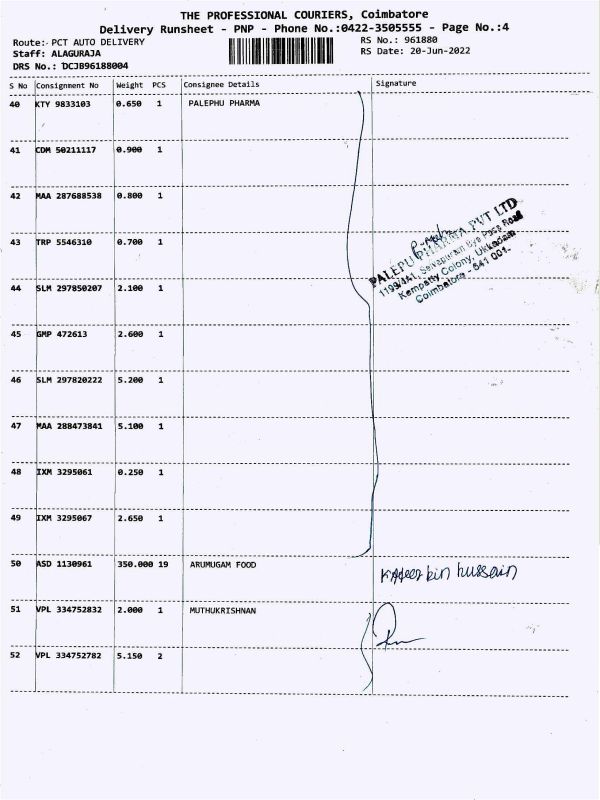 THE PROFESSIONAL COURIERS, Coimbatore
Delivery Runsheet - PNP - Phone No.:0422-3505555 - Page No.:4
Route: PCT AUTO DELIVERY
RS No.: 961880
Staff: ALAGURAJA
RS Date: 20-Jun-2022
DRS No.: DCJB96188004
S No Consignment No Weight PCS Consignee Details Signature
40 KTY 9833103 0.650 1 PALEPHU PHARMA
41 CDM 50211117 0.900 1
42 MAA 287688538 0.800 1
43 TRP 5546310 0.700 1
PALEPU PHARMA PVT LTD
1199/4A1, Selvapuram Bye Pass Road
Kempatty Colony, Ukkadam
Coimbatore - 641 001.
44 SLM 297850207 2.100 1
45 GMP 472613 2.600 1
46 SLM 297820222 5.200 1
47 MAA 288473841 5.100 1
48 IXM 3295061 0.250 1
49 IXM 3295067 2.650 1
50 ASD 1130961 350.000 19 ARUMUGAM FOOD
bin hussain
51 VPL 334752832 2.000 1 MUTHUKRISHNAN
52 VPL 334752782 5.150 2